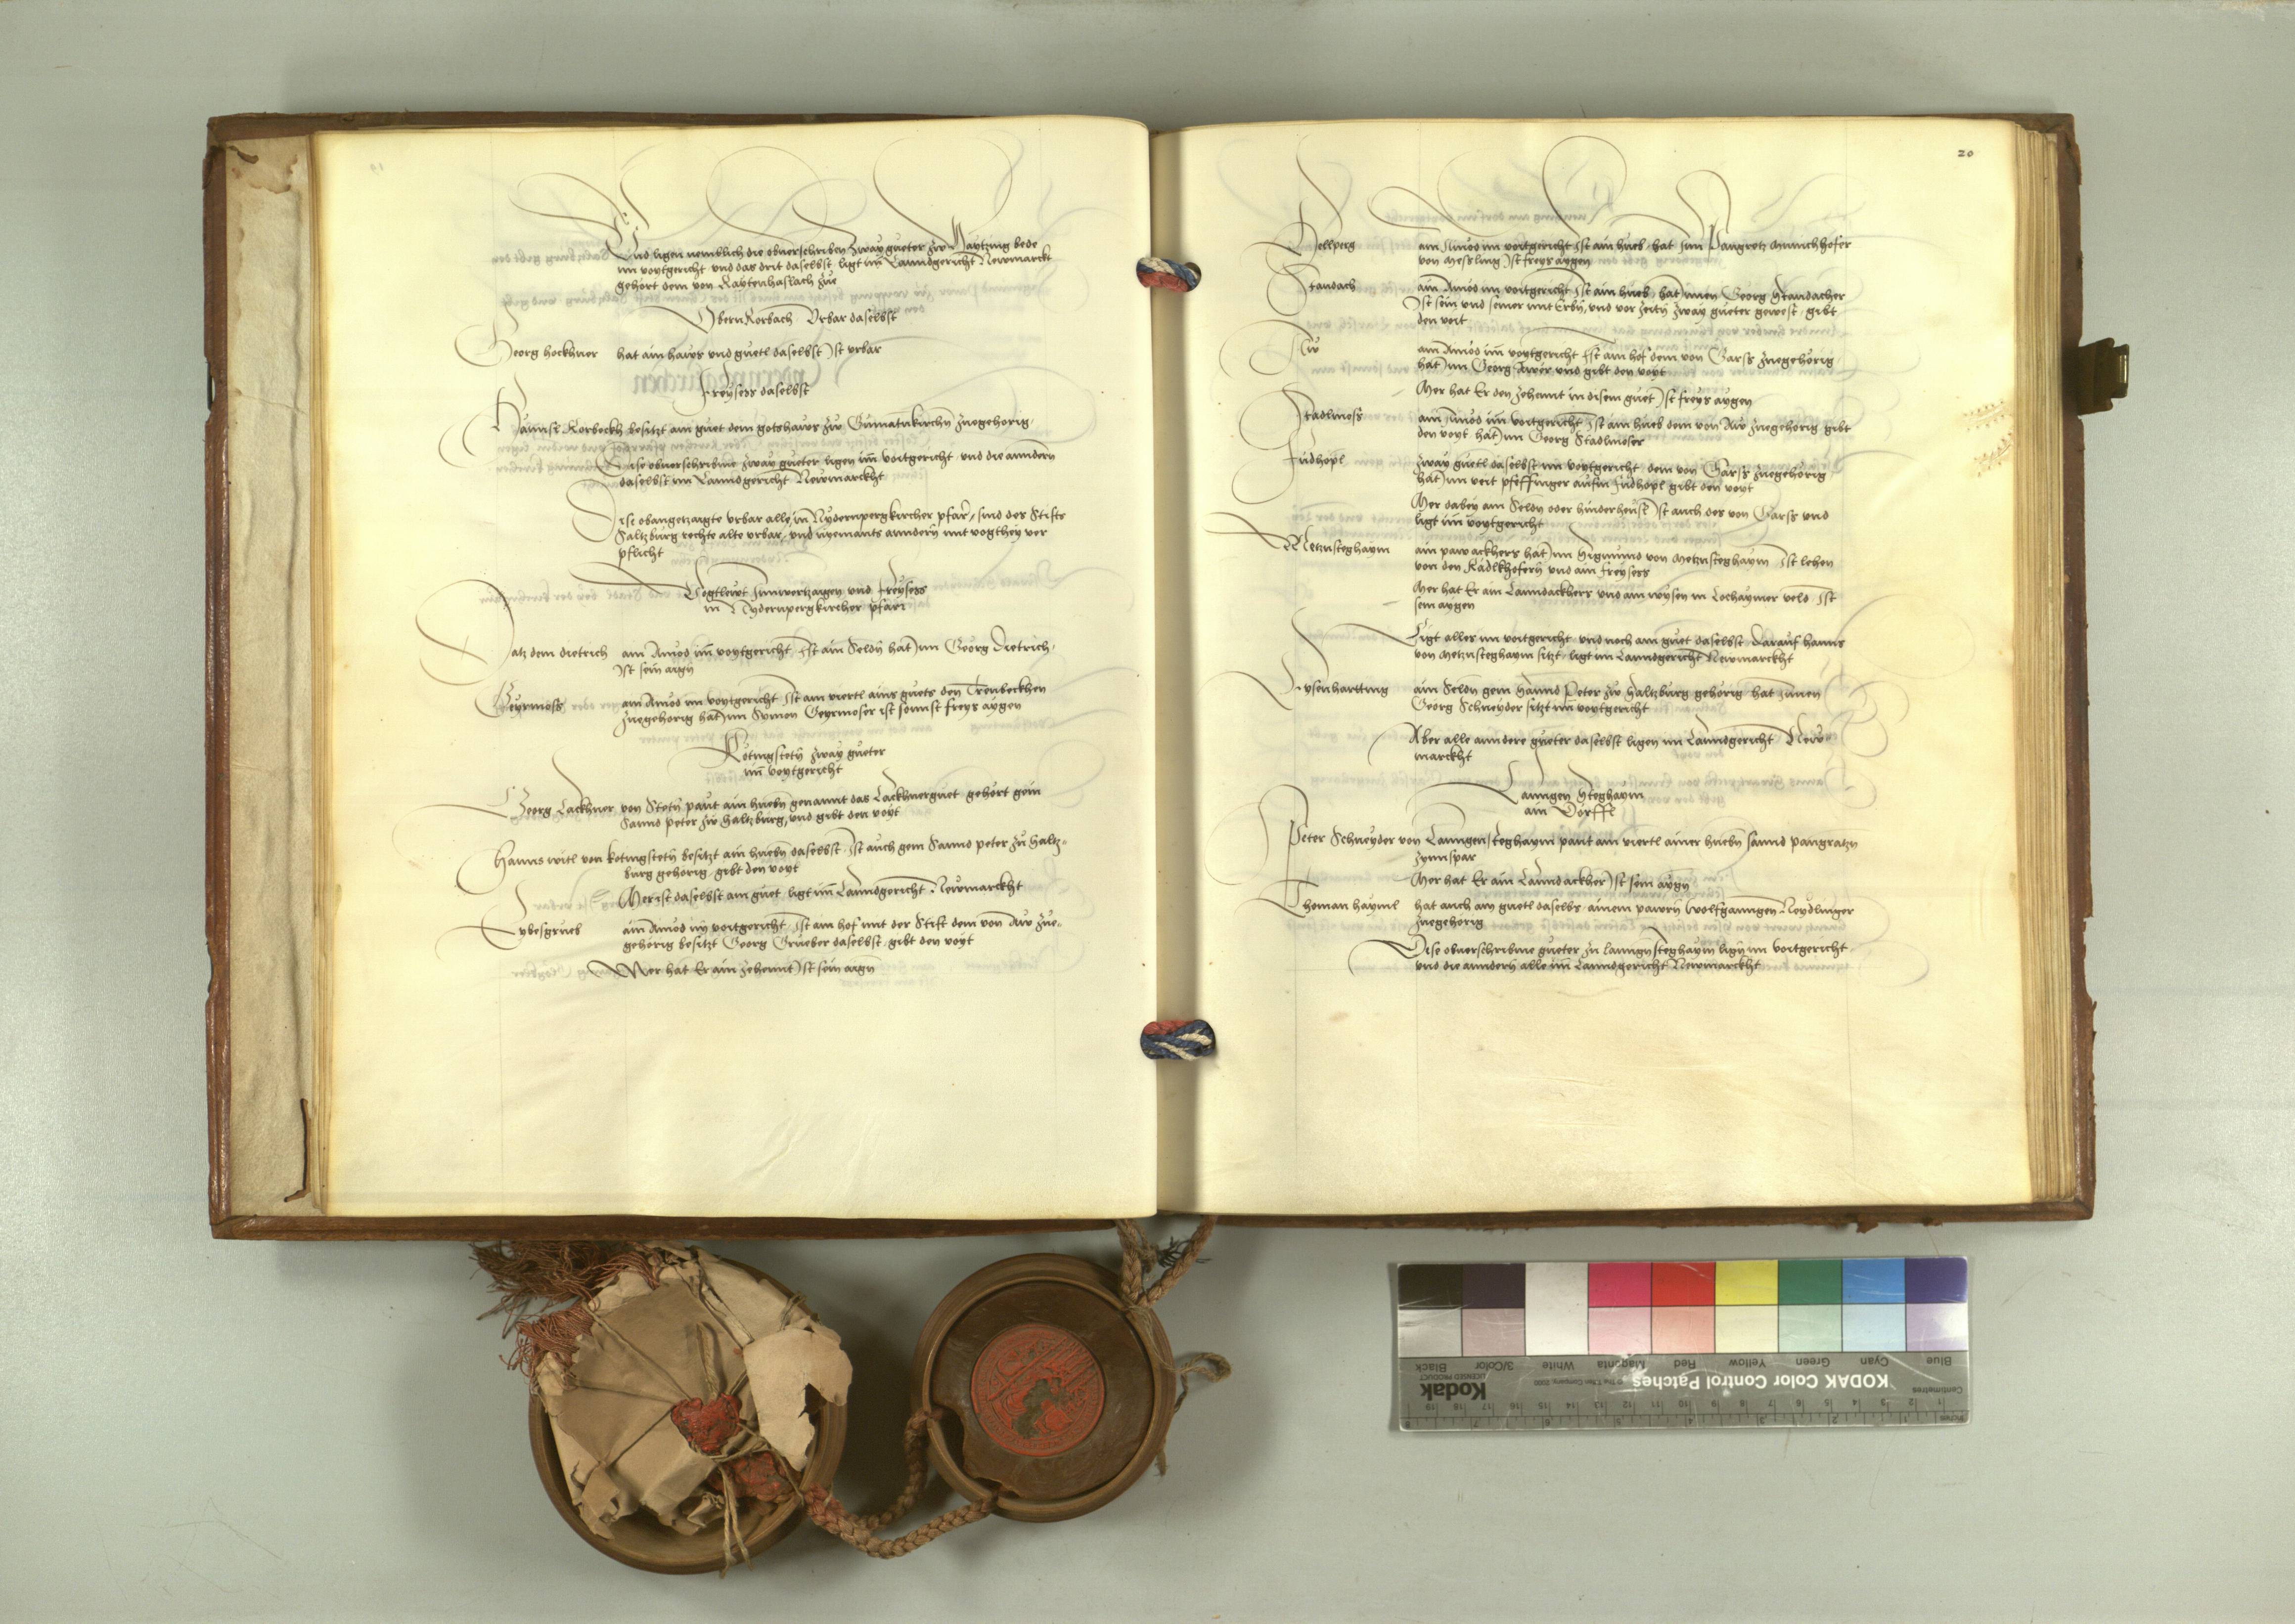 Und ligen nemblich die obuerschriben Zway gueter zw Haytzing bede
im voytgericht und das drit daselbst ligt im Lanndgericht Newmarckt
gehört dem von Raytenhaslach zue
Obern Korbach Urbar daselbst
Georg hockhner hat ain haws und guetl daselbst Ist urbar
Freysess daselbst
Hannss Korbeckh besitzt ain guet dem gotshaws zw Gumatnkirchn zuegehorig
Dise obuerschribne zway gueter ligen im voitgericht und die anndern
daselbst im Lanndgericht Newmarckht
Dise obangetzaigte urbar alle in Nydernpergkircher pfarr sind des Stifts
Saltzburg rechte alte urbar und nyemants anndern mit vogthey ver
pflicht
Vogtlewt Innwertzaigen und freysess
in Nydernpergkircher pfarr
Datz dem dietrich ain Amod im voytgericht Ist ain Seldn hat Im Georg Dietrich
Ist sein aign
Geyrmoss ain Amod im voytgericht Ist ain viertl ains guets den Trenbeckhen
zuegehorig hat Im Symon Geyrmoser ist sonnst freys aygen
Kotingstetn zway gueter
im voytgericht
Georg Lackhner von Stetn paut ain huebn genannt das Lackhnerguet gehört gein
Sannd peter zw Saltzburg, und gibt den voyt
Hanns witl von Kotingstetn besitzt ain huebn daselbst Ist auch gein Sannd peter zu Saltz-
burg gehorig gibt den voyt
Mer ist daselbst ain guet ligt im Lanndgericht Newmarckht
Eybesgrueb ain Amod im voitgericht Ist ain hof mit der Stift dem von Aw zue-
gehorig besitzt Georg Grueber daselbst gibt den voyt
Mer hat Er ain zehennt Ist sein aign
20
Hellperg ain Amod im voitgericht Ist ain hueb hat Im Pangretz Munichhofer
von Messling Ist freys aygen
Standach ain Amod im voitgericht Ist ain hueb hat Innen Georg Standacher
Ist sein und seiner mit Erbn, und vor zeitn zway gueter gewest gibt
den voit
Aw ain Amod im voytgericht Ist ain hof dem von Garss zuegehörig
hat Im Georg Awer und gibt den voyt
Mer hat Er den zehennt in disem guet Ist freys aygen
Stadlmoss ain Amod im voitgericht Ist ain hueb dem von Aw zuegehörig gibt
den voyt hat Im Georg Stadlmoser
Judhopl zway guetl daselbst im voytgericht dem von Garss zuegehörig
hat Im veit pfeffinger aufm Judhopl gibt den voyt
Mer dabey ain Seldn oder hinderhewsl Ist auch des von Garss und
ligt im voytgericht
Metznsteghaym ain paw ackhers hat Im Sigmund von Metznsteghaym Ist lehen
von den Radlkhofern und ain freysess
Mer hat Er ain Lanndackher und ain wysen in Lochaymer veld Ist
sein aygen
Ligt alles im voitgericht und noch ain guet daselbst darauf hanns
von Metznsteghaym sitzt ligt im Lanndgericht Newmarckht
Eysenhartting ain Seldn gein Sannd Peter zw Saltzburg gehörig hat Innen
Georg Schneyder sitzt im voytgericht
Aber alle anndere gueter daselbst ligen im Lanndgericht New-
marckht
Lanngen Steghaym
ain Dörffl
Peter Schneyder von Lanngen Steghaym paut ain viertl ainer huebn sannd pangratzn
zynnspar
Mer hat Er ain Lanndackher Ist sein aygn
Thoman hayml hat auch ain guetl daselbs ainem pawrn Wolfganngen Neydlinger
zuegehörig
Dise obuerschribne gueter zu lanngnsteghaym lign im voitgericht
und die anndern alle im Lanndgericht Newmarckht
KODAK Color Control Patches
Kodak
LICENSED PRODUCT
Blue Cyan Green Yellow Red Magenta White 3/Color Black
Centimetres
Inches